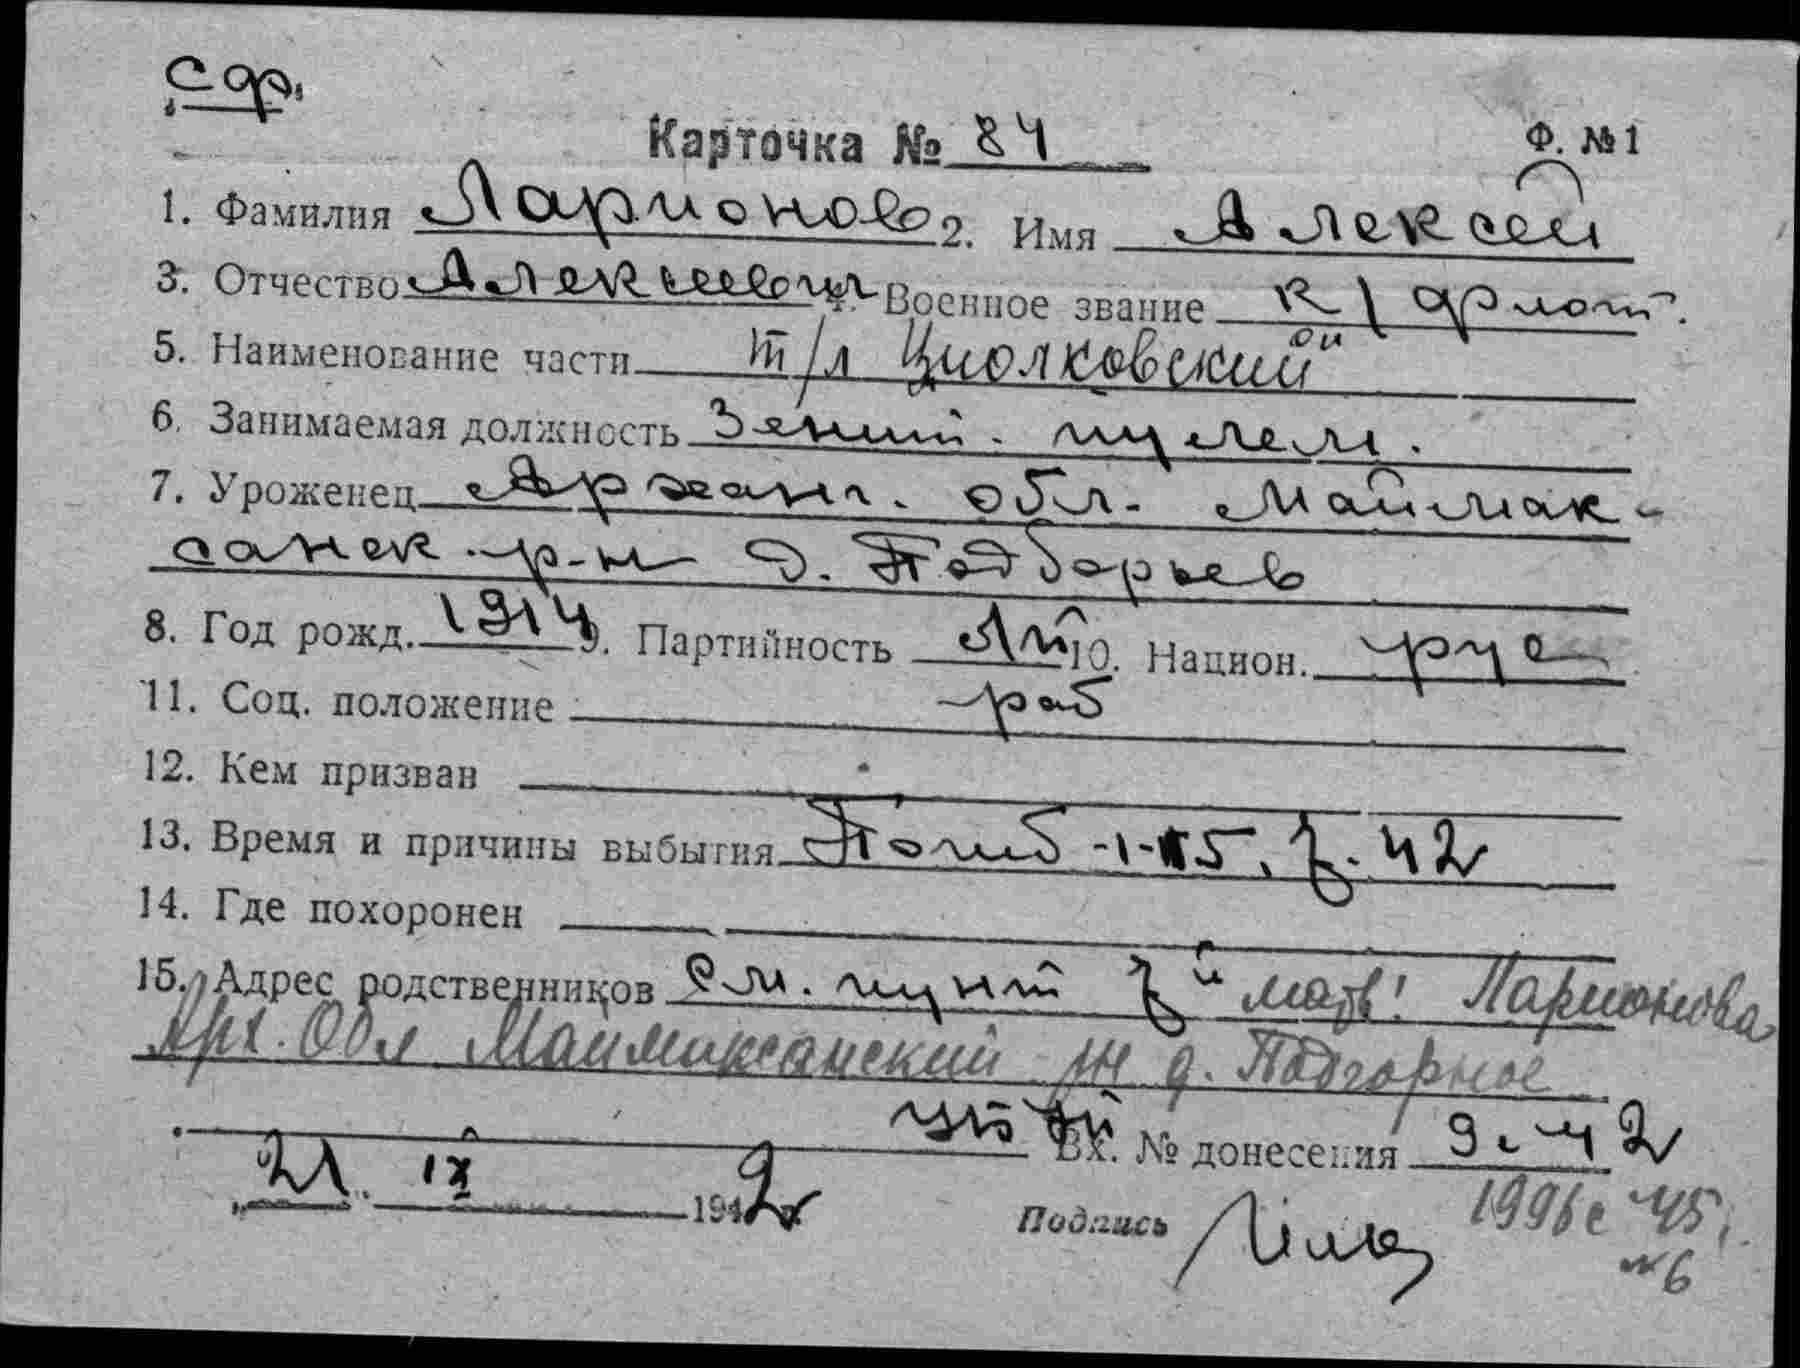 СФ.
Карточка № 84
Ф. № 1
1. Фамилия Ларионов 2. Имя Алексей
3. Отчество Алексеевич 4. Военное звание к/флот.
5. Наименование части т/л Циолковский
6. Занимаемая должность Зенит. пулем.
7. Уроженец Арханг. обл. Маймак-
санск. р-н д. Подборьев
8. Год рожд. 1914 9. Партийность 10. Национ. рус
11. Соц. положение раб
12. Кем призван
13. Время и причины выбытия Погиб 5.7.42
14. Где похоронен
15. Адрес родственников См. пункт 7й мать: Ларионова
Арх. Обл Маймаксанский рн д. Подгорное
Вх. № донесения 9. 42
21. IX 1942 г.
Подпись 1996с 45г.
№6